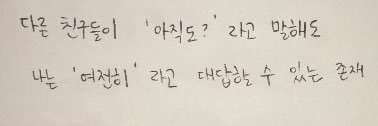 다른 친구들이 '아직도?' 라고 말해도
나는 '여전히' 라고 대답할 수 있는 존재